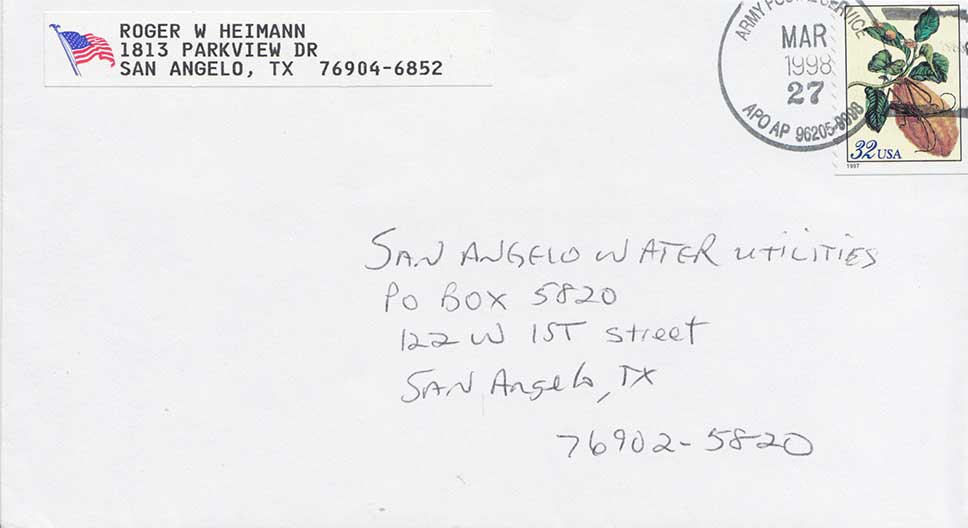 ROGER W HEIMANN
1813 PARKVIEW DR
SAN ANGELO, TX 76904-6852
ARMY POSTAL SERVICE
MAR
1998
27
APO AP 96205-9998
32 USA
1997
SAN ANGELO WATER UTILITIES
PO BOX 5820
122 W 1ST Street
SAN Angelo, TX
76902-5820